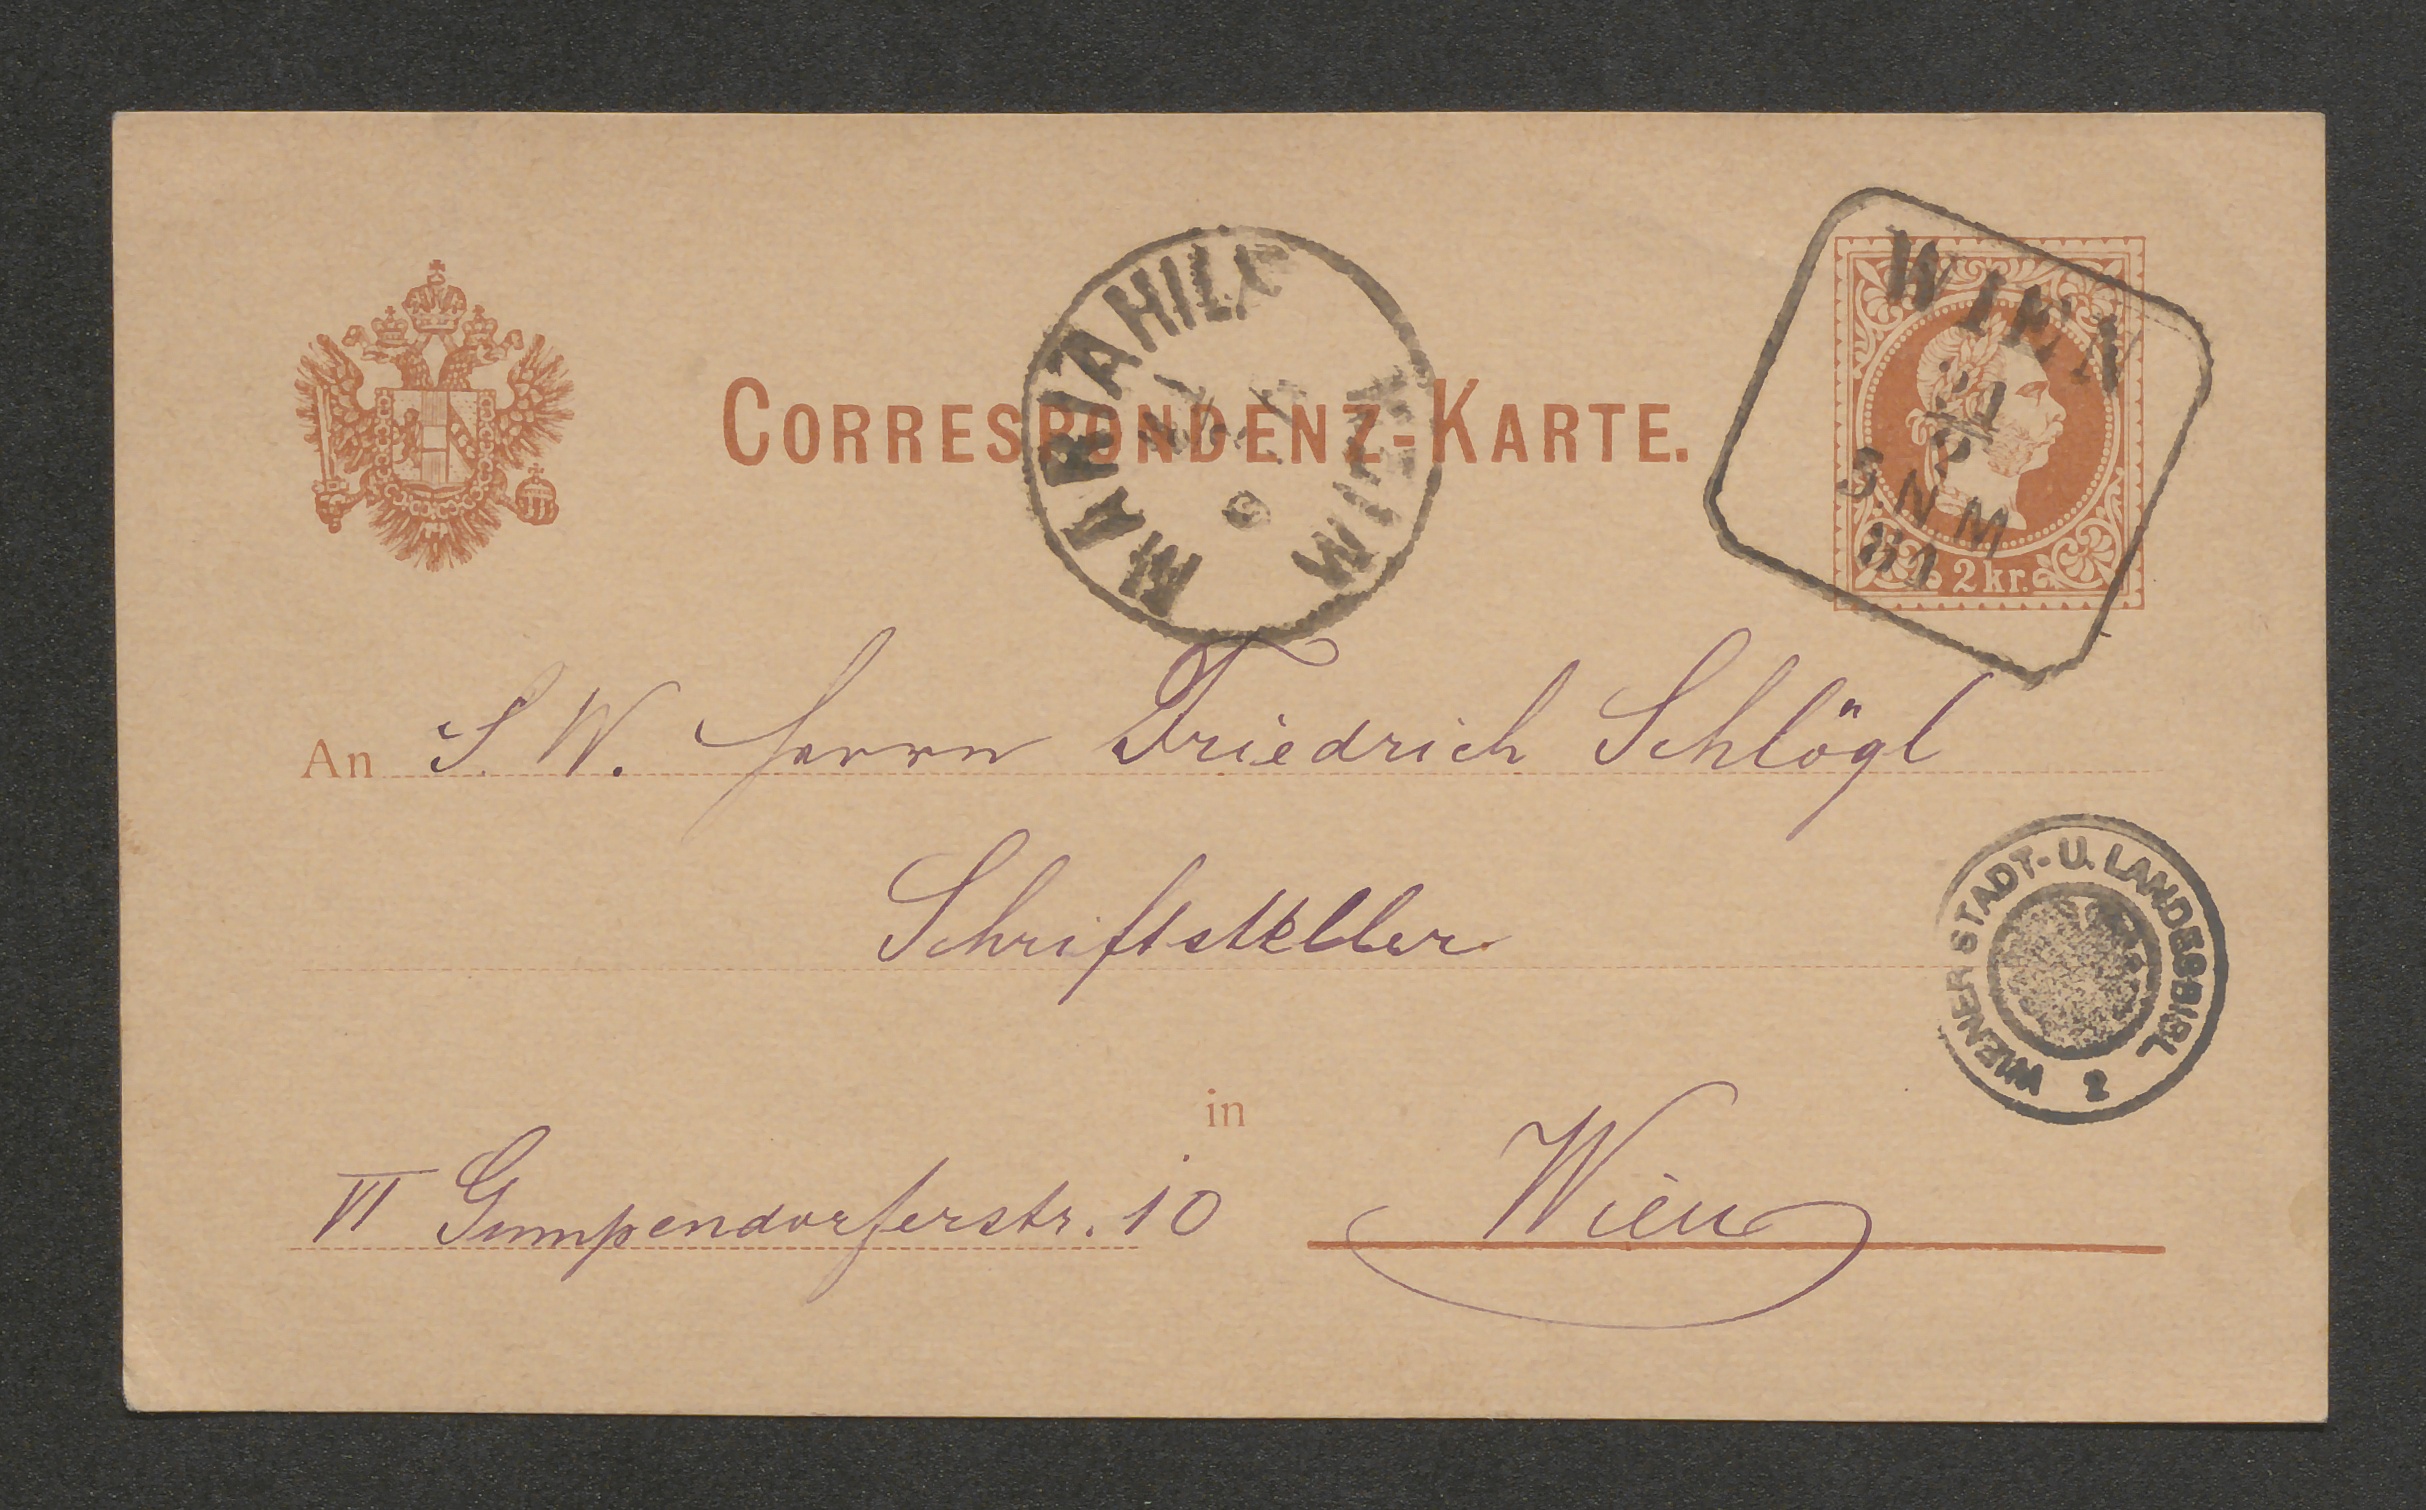 CORRESPONDENZ-KARTE.
MARIAHILF
WIEN
WIEN
21
3 N M
81
2 kr.
An S. W. Herrn Friedrich Schlögl
Schriftsteller
WIENER STADT- U. LANDESBIBL.
2
in
VI Gumpendorferstr. 10 Wien